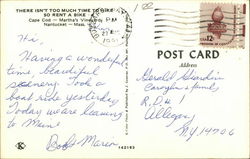 THERE ISN'T TOO MUCH TIME TO BIKE
SO RENT A BIKE
Cape Cod — Martha's Vineyard
Nantucket — Mass.
PM
POST CARD
Address
Hi,
Having a wonderful
time, beautiful
scenery. Took a
boat ride yesterday
Today we are leaving
to Maine
Bob & Maren
Gerald
family
R.D. #
Allegany
NY 14706
142183